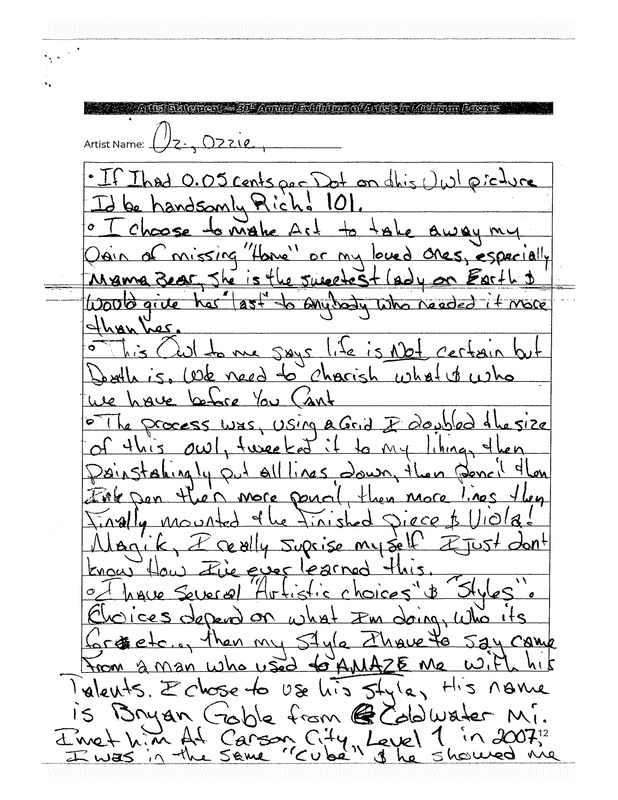 Artist Statement — 30th Annual Exhibition of Artists in Michigan Prisons
Artist Name: Oz., Ozzie,
• If I had 0.05 cents per Dot on this Owl picture
I'd be handsomly Rich! lOl.
• I choose to make Art to take away my
Pain of missing "Home" or my loved ones, especially
Mama Bear, She is the sweetest lady on Earth &
would give her "last" to anybody who needed it more
than her.
• This Owl to me says life is Not certain but
Death is. We need to charish what & who
we have before You Cant
• The process was, using a Grid I doubled the size
of this owl, tweeked it to my liking, then
painstakingly put all lines down, then pencil then
Ink pen then more pencil, then more lines then
Finally mounted the finished piece & Viola!
Magik, I really suprise myself I Just dont
know How I've ever learned this.
• I have several "Artistic choices" & "Styles".
Choices depend on what I'm doing, who its
for etc.., then my Style I have to say came
from a man who used to AMAZE me with his
Talents. I chose to use his style, His name
is Bryan Goble from Coldwater Mi.
I met him At Carson City Level 1 in 2007,
12
I was in the same "Cube" & he showed me